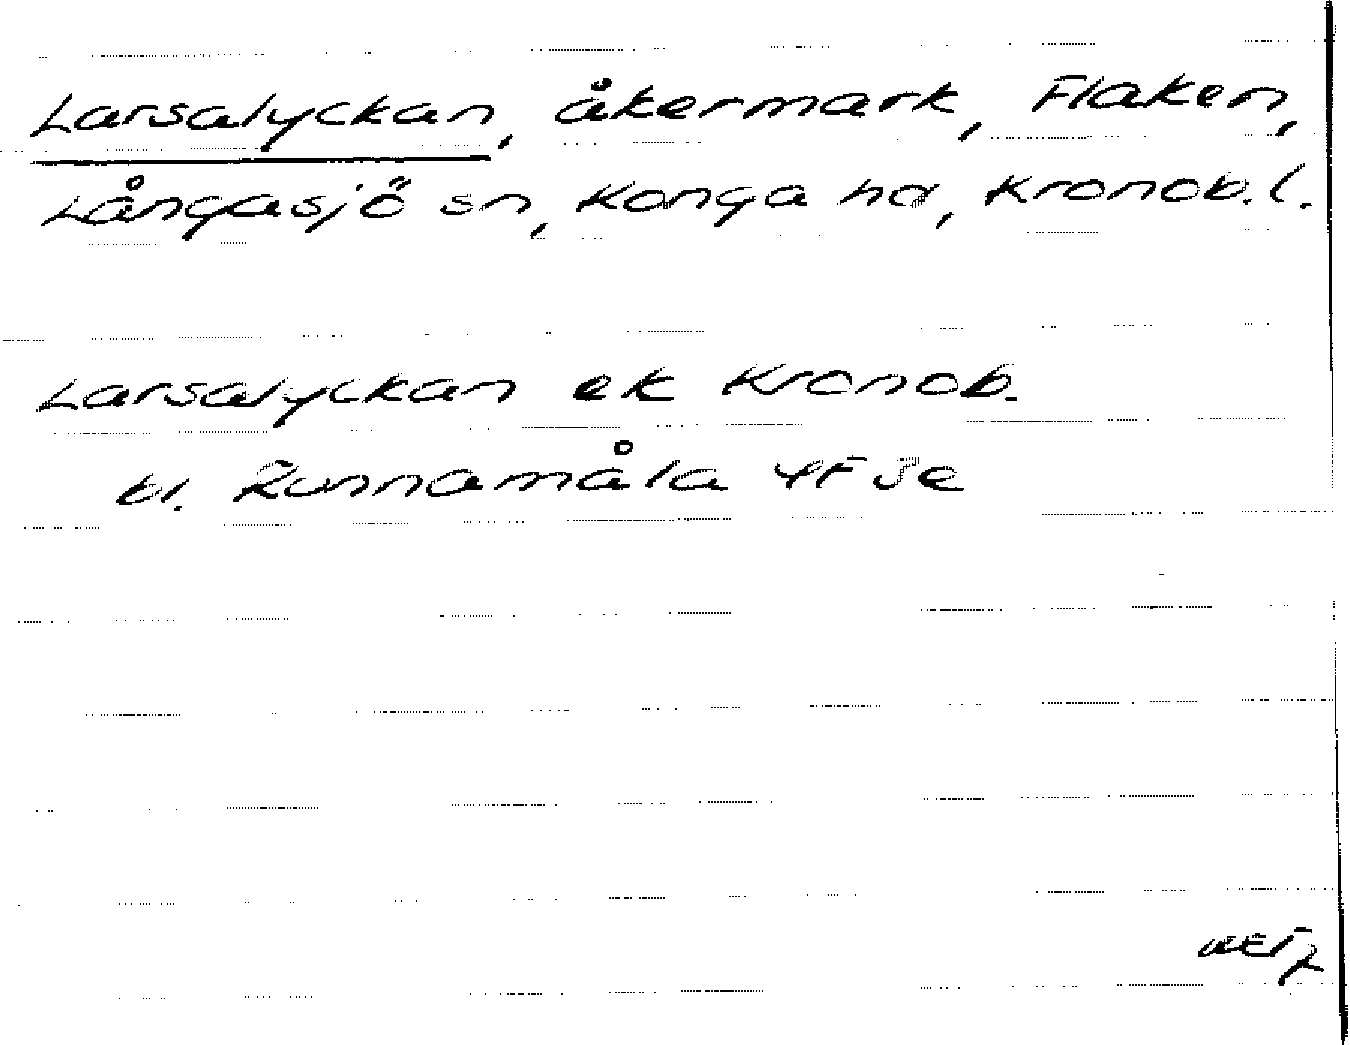 Larsalyckan, åkermark, Flaken,
Långasjö sn, Konga hd, Kronob. l.
Larsalyckan ek Kronob.
bl. Runnamåla 4F Je